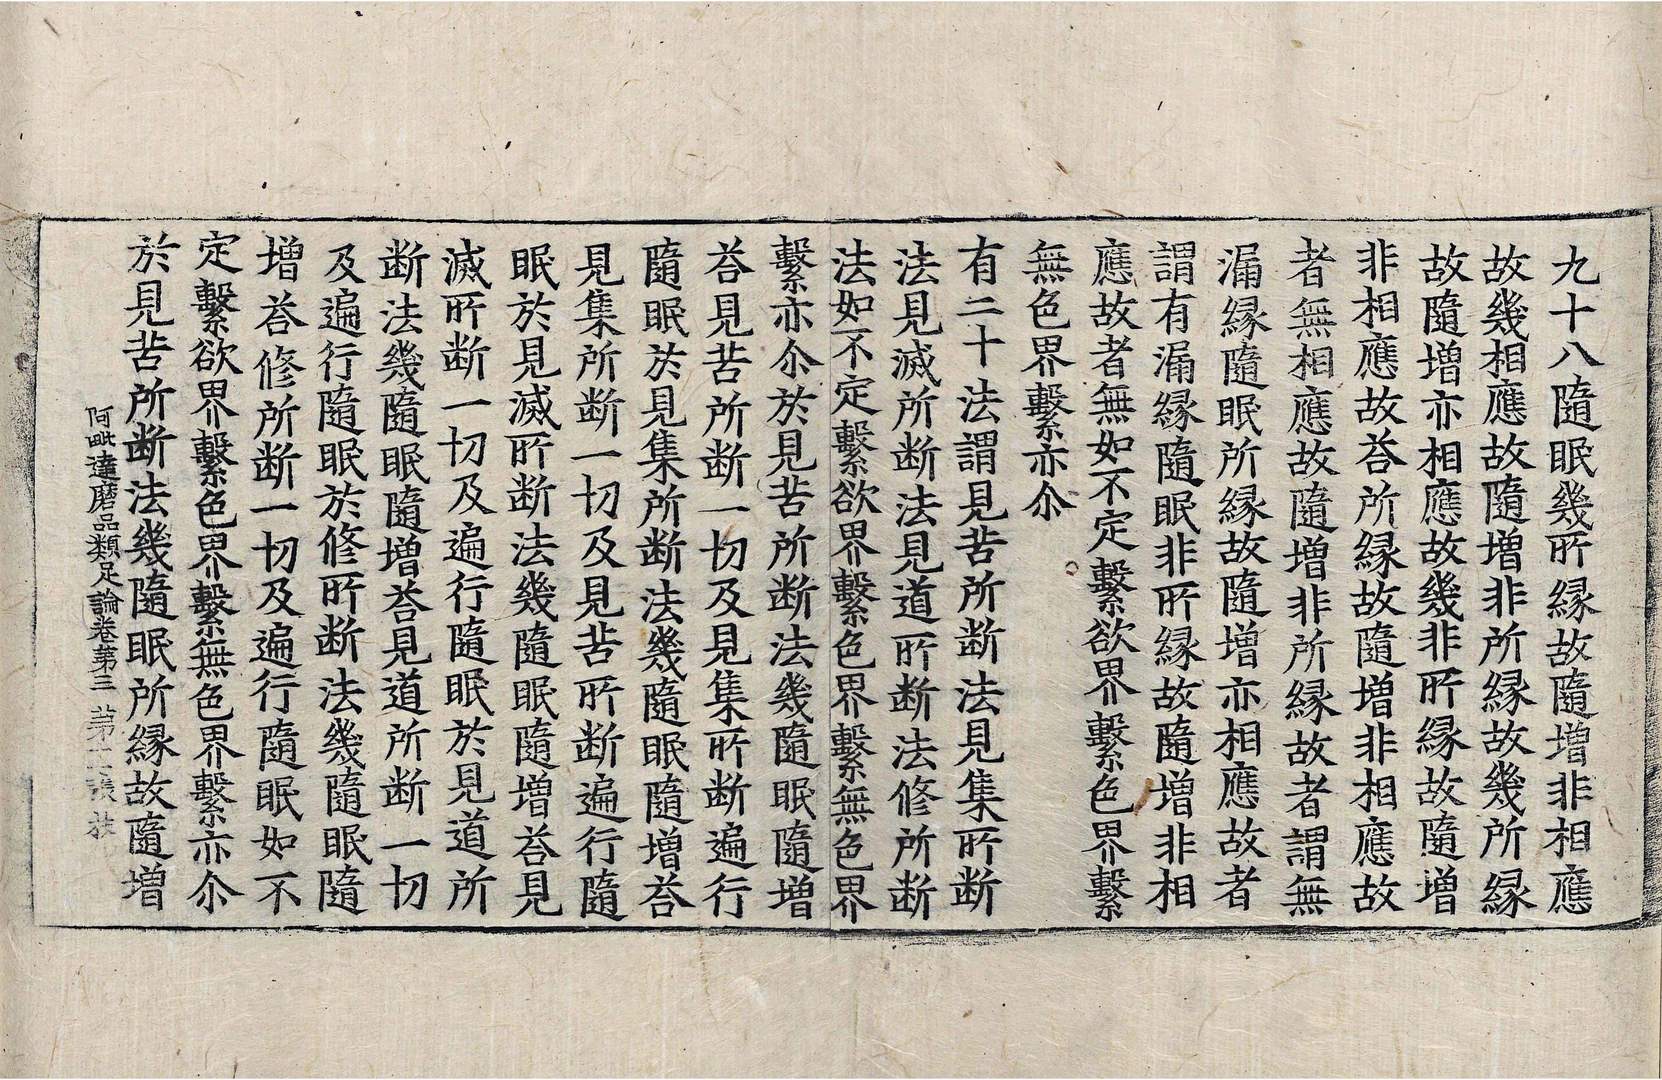 九十八隨眠幾所縁故隨增非相應
故幾相應故隨增非所縁故幾所縁
故隨增亦相應故幾非所縁故隨增
非相應故荅所縁故隨增非相應故
者無相應故隨增非所縁故者謂無
漏縁隨眠所縁故隨增亦相應故者
謂有漏縁隨眠非所縁故隨增非相
應故者無如不定繫欲界繫色界繫
無色界繫亦尒
有二十法謂見苦所断法見集所断
法見滅所断法見道所断法修所断
法如不定繫欲界繫色界繫無色界
繫亦尒於見苦所断法幾隨眠隨增
荅見苦所断一切及見集所断遍行
隨眠於見集所断法幾隨眠隨增荅
見集所断一切及見苦所断遍行隨
眠於見滅所断法幾隨眠隨增荅見
滅所断一切及遍行隨眠於見道所
断法幾隨眠隨增荅見道所断一切
及遍行隨眠於修所断法幾隨眠隨
增荅修所断一切及遍行隨眠如不
定繫欲界繫色界繫無色界繫亦尒
於見苦所断法幾隨眠所縁故隨增
阿毗達磨品類足論卷第三 第十 張